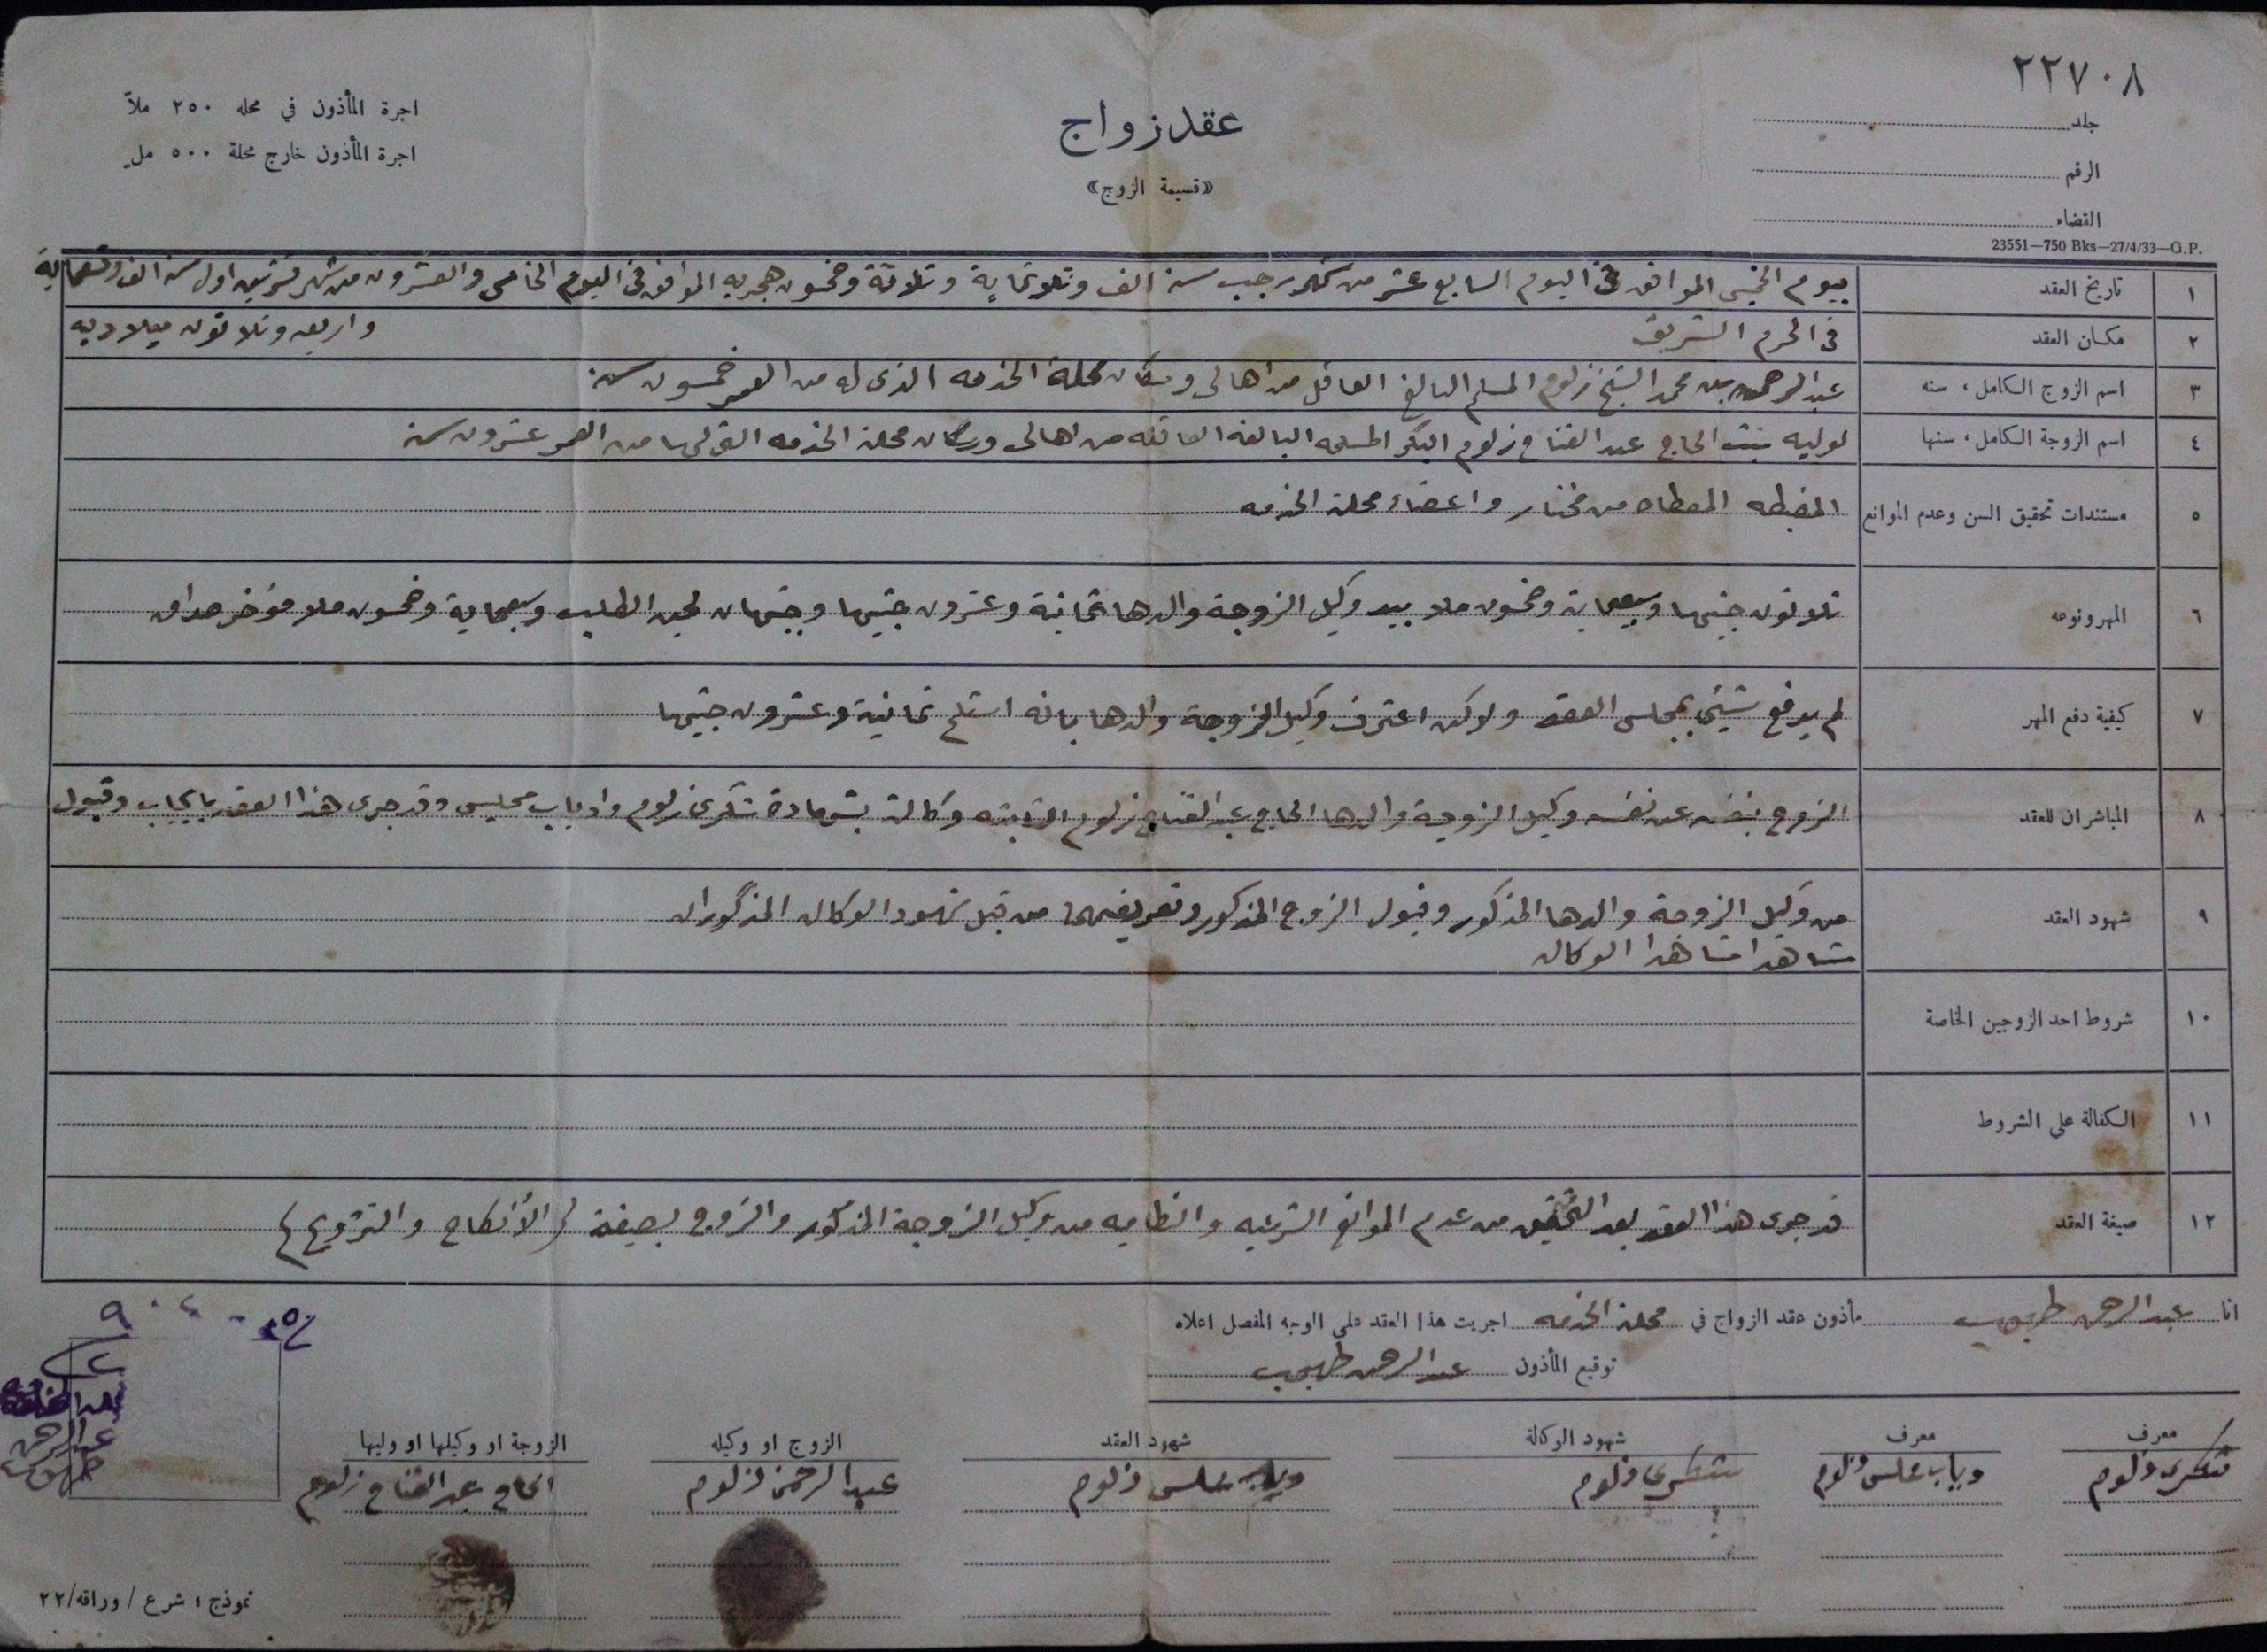 ٢٢٧٠٨
جلد
الرقم
القضاء
23551—750 Bks—27/4/33—G.P.
عقد زواج
«قسيمة الزوج»
اجرة المأذون في محله ٢٥٠ ملاً
اجرة المأذون خارج محلة ٥٠٠ مل
١ تاريخ العقد بيوم الخميس الموافق في اليوم السابع عشر من شهر رجب سنة الف وثلاثماية وثلاثة وخمسون هجريه الموافق في اليوم الخامس والعشرون من شهر تشرين اول سنة الف وتسعماية
واربعه وثلاثون ميلاديه
٢ مكان العقد في الحرم الشريف
٣ اسم الزوج الكامل، سنه عبد الرحمن بن محمد الشيخ زلوم المسلم البالغ العاقل من اهالي وسكان محلة الخزمه الذي له من العمر خمسون سنة
٤ اسم الزوجة الكامل، سنها لوليه بنت الحاج عبد الفتاح زلوم البكر المسلمه البالغه العاقله من اهالي وسكان محلة الخزمه التي لها من العمر عشرون سنة
٥ مستندات تحقيق السن وعدم الموانع المضبطه المعطاه من مختار واعضاء محلة الخزمه
٦ المهر ونوعه ثلاثون جنيها وسبعماية وخمسون ملا بيد وكيل الزوجة والدها ثمانية وعشرون جنيها وجنيهان لحين الطلب وسبعماية وخمسون ملا مؤخر صداق
٧ كيفية دفع المهر لم يدفع شيئ بمجلس العقد ولاكن اعترف وكيل الزوجة والدها بانه استلم ثمانية وعشرون جنيها
٨ المباشران للعقد الزوج بنفسه عن نفسه وكيل الزوجة والدها الحاج عبد الفتاح زلوم الثابته وكالته بشهادة شكري زلوم وادياب وقد جرى هذا العقد بايجاب وقبول
٩ شهود العقد من وكيل الزوجة والدها المذكور وقبول الزوج المذكور وتعريفهما من قبل شهود الوكاله المذكوران
شاهدا الوكاله
١٠ شروط احد الزوجين الخاصة
١١ الكفالة على الشروط
١٢ صيغة العقد قد جرى هذا العقد بعد التحقيق من عدم الموانع الشرعيه والنظاميه من وكيل الزوجة المذكور والزوج بصيغة (الأنكاح والتزويج)
انا عبد الرحمن طهبوب مأذون عقد الزواج في محلة الخزمه اجريت هذا العقد على الوجه المفصل اعلاه
توقيع المأذون عبد الرحمن طهبوب
معرف
شكري زلوم
معرف
دياب زلوم
شهود الوكالة
شكري زلوم
شهود العقد
زلوم
الزوج او وكيله
عبد الرحمن زلوم
الزوجة او وكيلها او وليها
الحاج عبد الفتاح زلوم
عبد الرحمن
نموذج ١ شرع / وراقه/٢٢